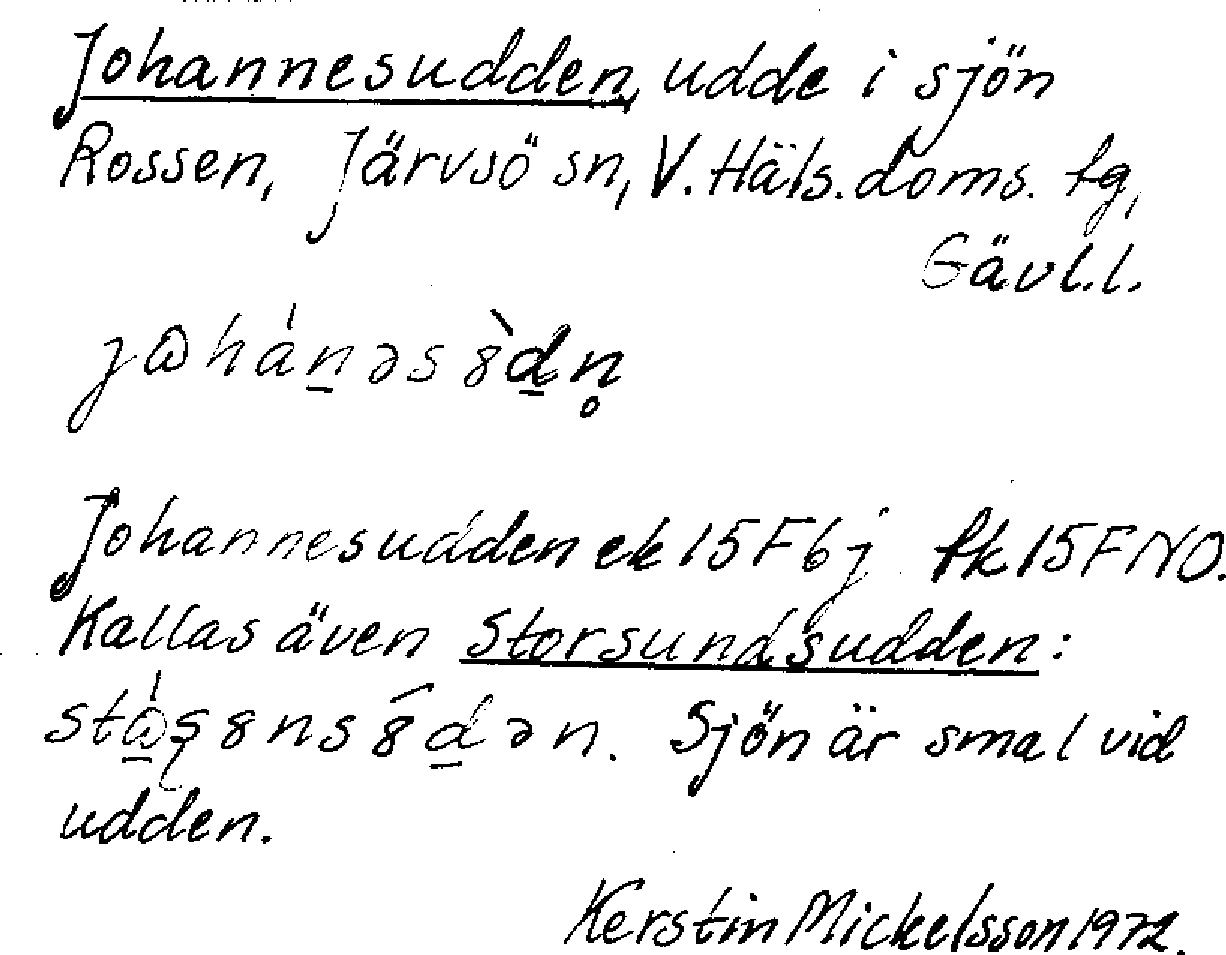 Johannesudden, udde i sjön
Rossen, Järvsö sn, V. Häls. doms. tg,
Gävl.l.
Johannesudden ek 15F6j fk 15FNO.
Kallas även Storsundsudden:
Sjön är smal vid
udden.
Kerstin Mickelsson 1972.